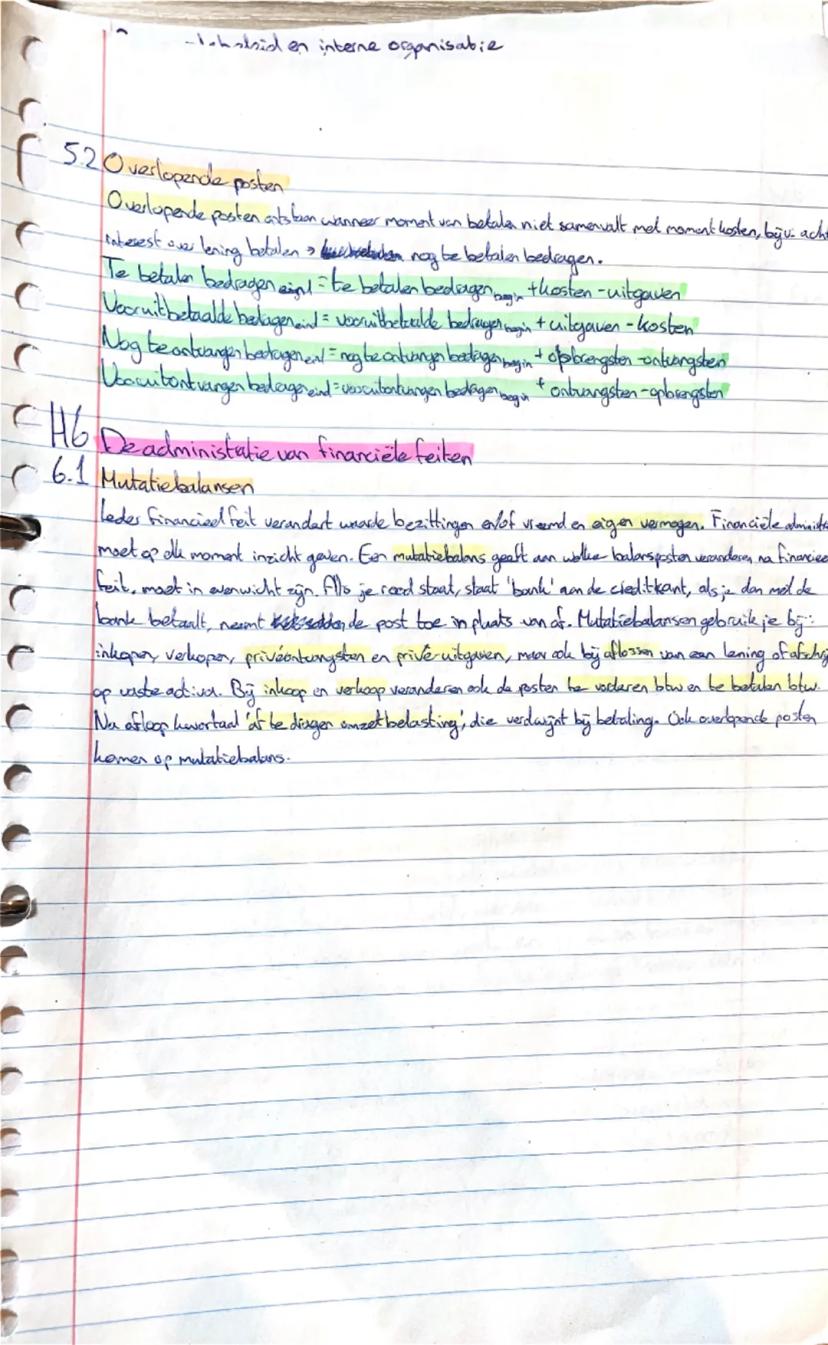 en interne organisatie
5.2 Overlopende posten
Overlopende posten ontstaan wanneer moment van betalen niet samenvalt met moment kosten, bijv. acht
interest over lening betalen → nog te betalen bedragen.
Te betalen bedragen eind = te betalen bedragen begin + kosten - uitgaven
Vooruitbetaalde bedragen eind = vooruitbetaalde bedragen begin + uitgaven - kosten
Nog te ontvangen bedragen eind = nog te ontvangen bedragen begin + opbrengsten - ontvangsten
Vooruitontvangen bedragen eind = vooruitontvangen bedragen begin + ontvangsten - opbrengsten
H6 De administratie van financiële feiten
6.1 Mutatiebalansen
Ieder financieel feit verandert waarde bezittingen en/of vreemd en eigen vermogen. Financiële administ
moet op elk moment inzicht geven. Een mutatiebalans geeft aan welke balansposten veranderen na financiee
feit, moet in evenwicht zijn. Als je rood staat, staat 'bank' aan de creditkant, als je dan met de
bank betaalt, neemt de post toe in plaats van af. Mutatiebalansen gebruik je bij:
inkopen, verkopen, privéontvangsten en privé-uitgaven, maar ook bij aflossen van een lening of afschrij
op vaste activa. Bij inkoop en verkoop veranderen ook de posten te vorderen btw en te betalen btw.
Na afloop kwartaal 'af te dragen omzetbelasting', die verdwijnt bij betaling. Ook overlopende posten
komen op mutatiebalans.